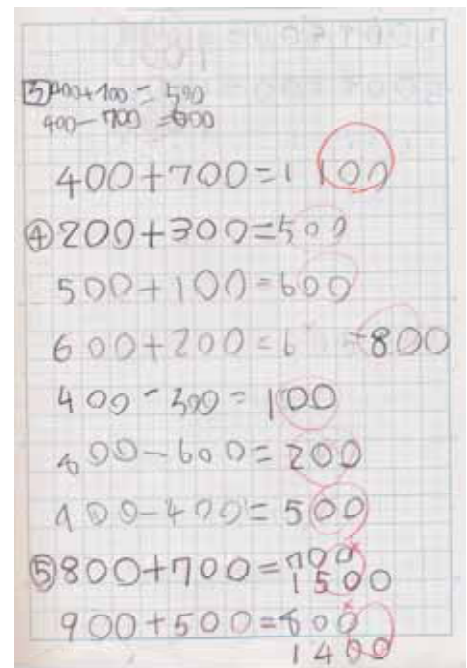 3 400+100=500
400-700=600
400+700=1100
④200+300=500
500+100=600
600+200=6 =800
400-300=100
800-600=200
900-400=500
⑤800+700=700
1500
900+500=800
1400